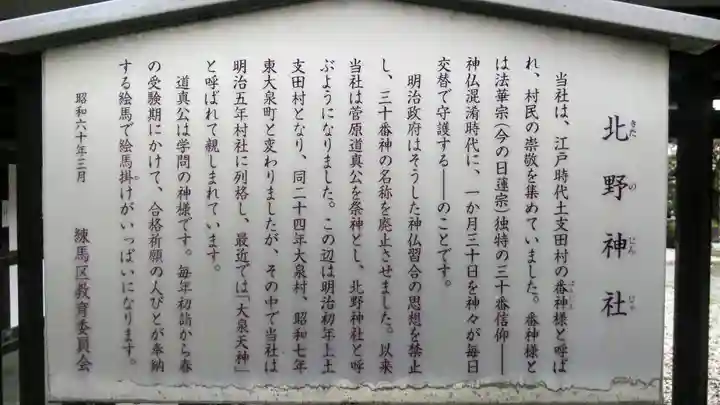 北野神社
きたのじんじゃ
当社は、江戸時代土支田村の番神様と呼ば
れ、村民の崇敬を集めていました。番神様と
は法華宗(今の日蓮宗)独特の三十番信仰――
神仏混淆時代に、一か月三十日を神々が毎日
交替で守護する――のことです。
明治政府はそうした神仏習合の思想を禁止
し、三十番神の名称を廃止させました。以来
当社は菅原道真公を祭神とし、北野神社と呼
ぶようになりました。この辺は明治初年上土
支田村となり、同二十四年大泉村、昭和七年
東大泉町と変わりましたが、その中で当社は
明治五年村社に列格し、最近では「大泉天神」
と呼ばれて親しまれています。
道真公は学問の神様です。毎年初詣から春
の受験期にかけて、合格祈願の人びとが奉納
する絵馬で絵馬掛けがいっぱいになります。
昭和六十年三月
練馬区教育委員会